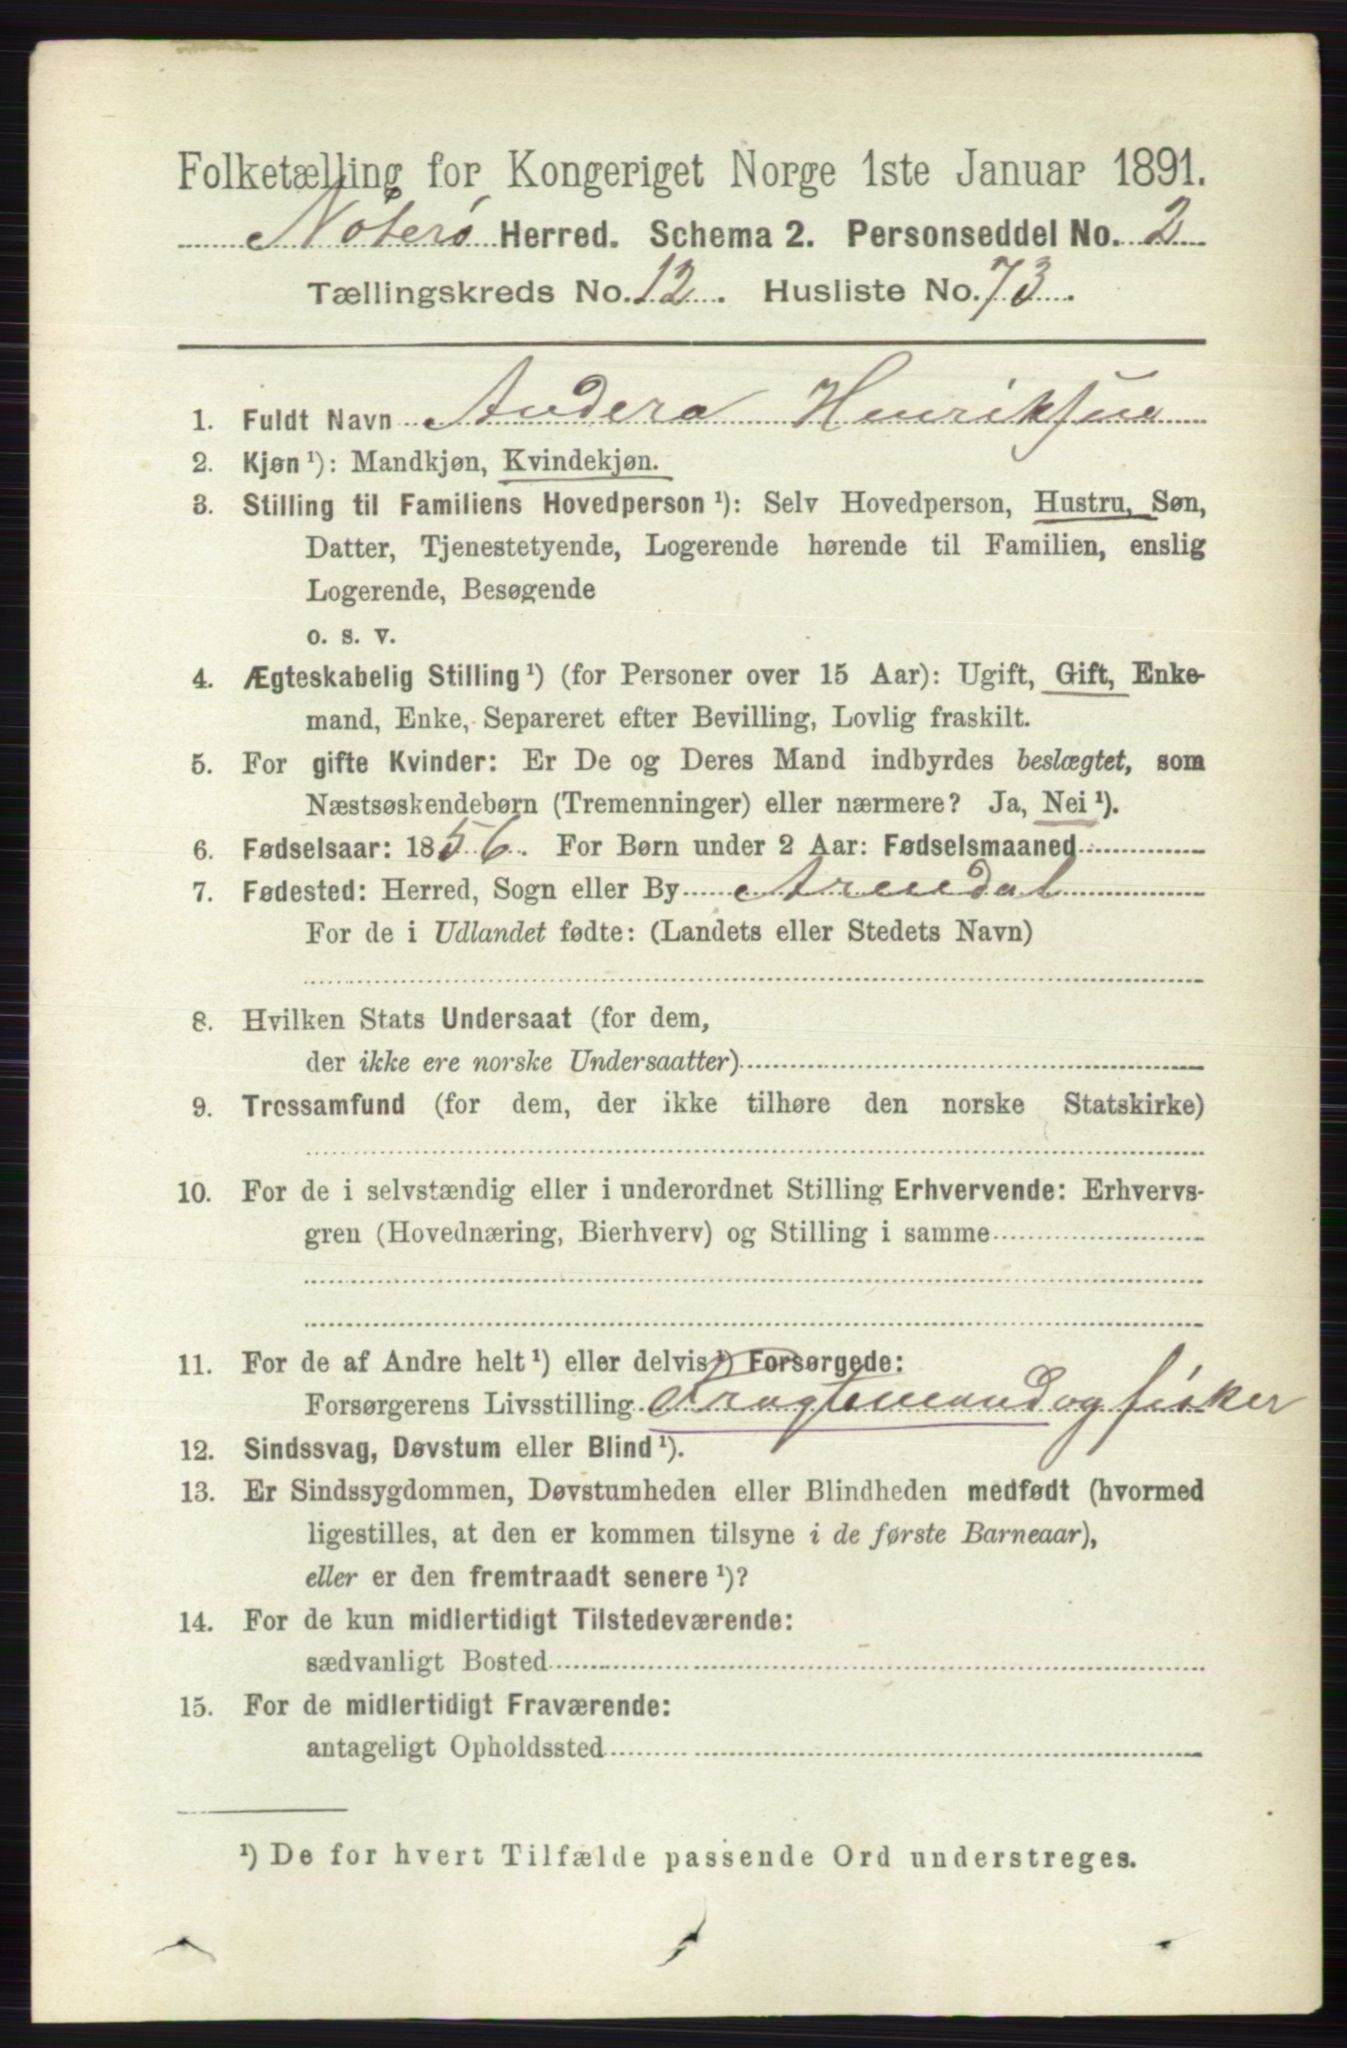 Folketælling for Kongeriget Norge 1ste Januar 1891.
Nøterø Herred. Schema 2. Personseddel No. 2
Tællingskreds No. 12. Husliste No. 73.
1. Fuldt Navn Andera Henriksen
2. Kjøn ¹): Mandkjøn, Kvindekjøn.
3. Stilling til Familiens Hovedperson ¹): Selv Hovedperson, Hustru, Søn,
Datter, Tjenestetyende, Logerende hørende til Familien, enslig
Logerende, Besøgende
o. s. v.
4. Ægteskabelig Stilling ¹) (for Personer over 15 Aar): Ugift, Gift, Enke-
mand, Enke, Separeret efter Bevilling, Lovlig fraskilt.
5. For gifte Kvinder: Er De og Deres Mand indbyrdes beslægtet, som
Næstsøskendebørn (Tremenninger) eller nærmere? Ja, Nei ¹).
6. Fødselsaar: 1856. For Børn under 2 Aar: Fødselsmaaned
7. Fødested: Herred, Sogn eller By Arendal
For de i Udlandet fødte: (Landets eller Stedets Navn)
8. Hvilken Stats Undersaat (for dem,
der ikke ere norske Undersaatter)
9. Trossamfund (for dem, der ikke tilhøre den norske Statskirke)
10. For de i selvstændig eller i underordnet Stilling Erhvervende: Erhvervs-
gren (Hovednæring, Bierhverv) og Stilling i samme
11. For de af Andre helt ¹) eller delvis ¹) Forsørgede:
Forsørgerens Livsstilling Fragtemand og fisker
12. Sindssvag, Døvstum eller Blind ¹).
13. Er Sindssygdommen, Døvstumheden eller Blindheden medfødt (hvormed
ligestilles, at den er kommen tilsyne i de første Barneaar),
eller er den fremtraadt senere ¹)?
14. For de kun midlertidigt Tilstedeværende:
sædvanligt Bosted
15. For de midlertidigt Fraværende:
antageligt Opholdssted
¹) De for hvert Tilfælde passende Ord understreges.